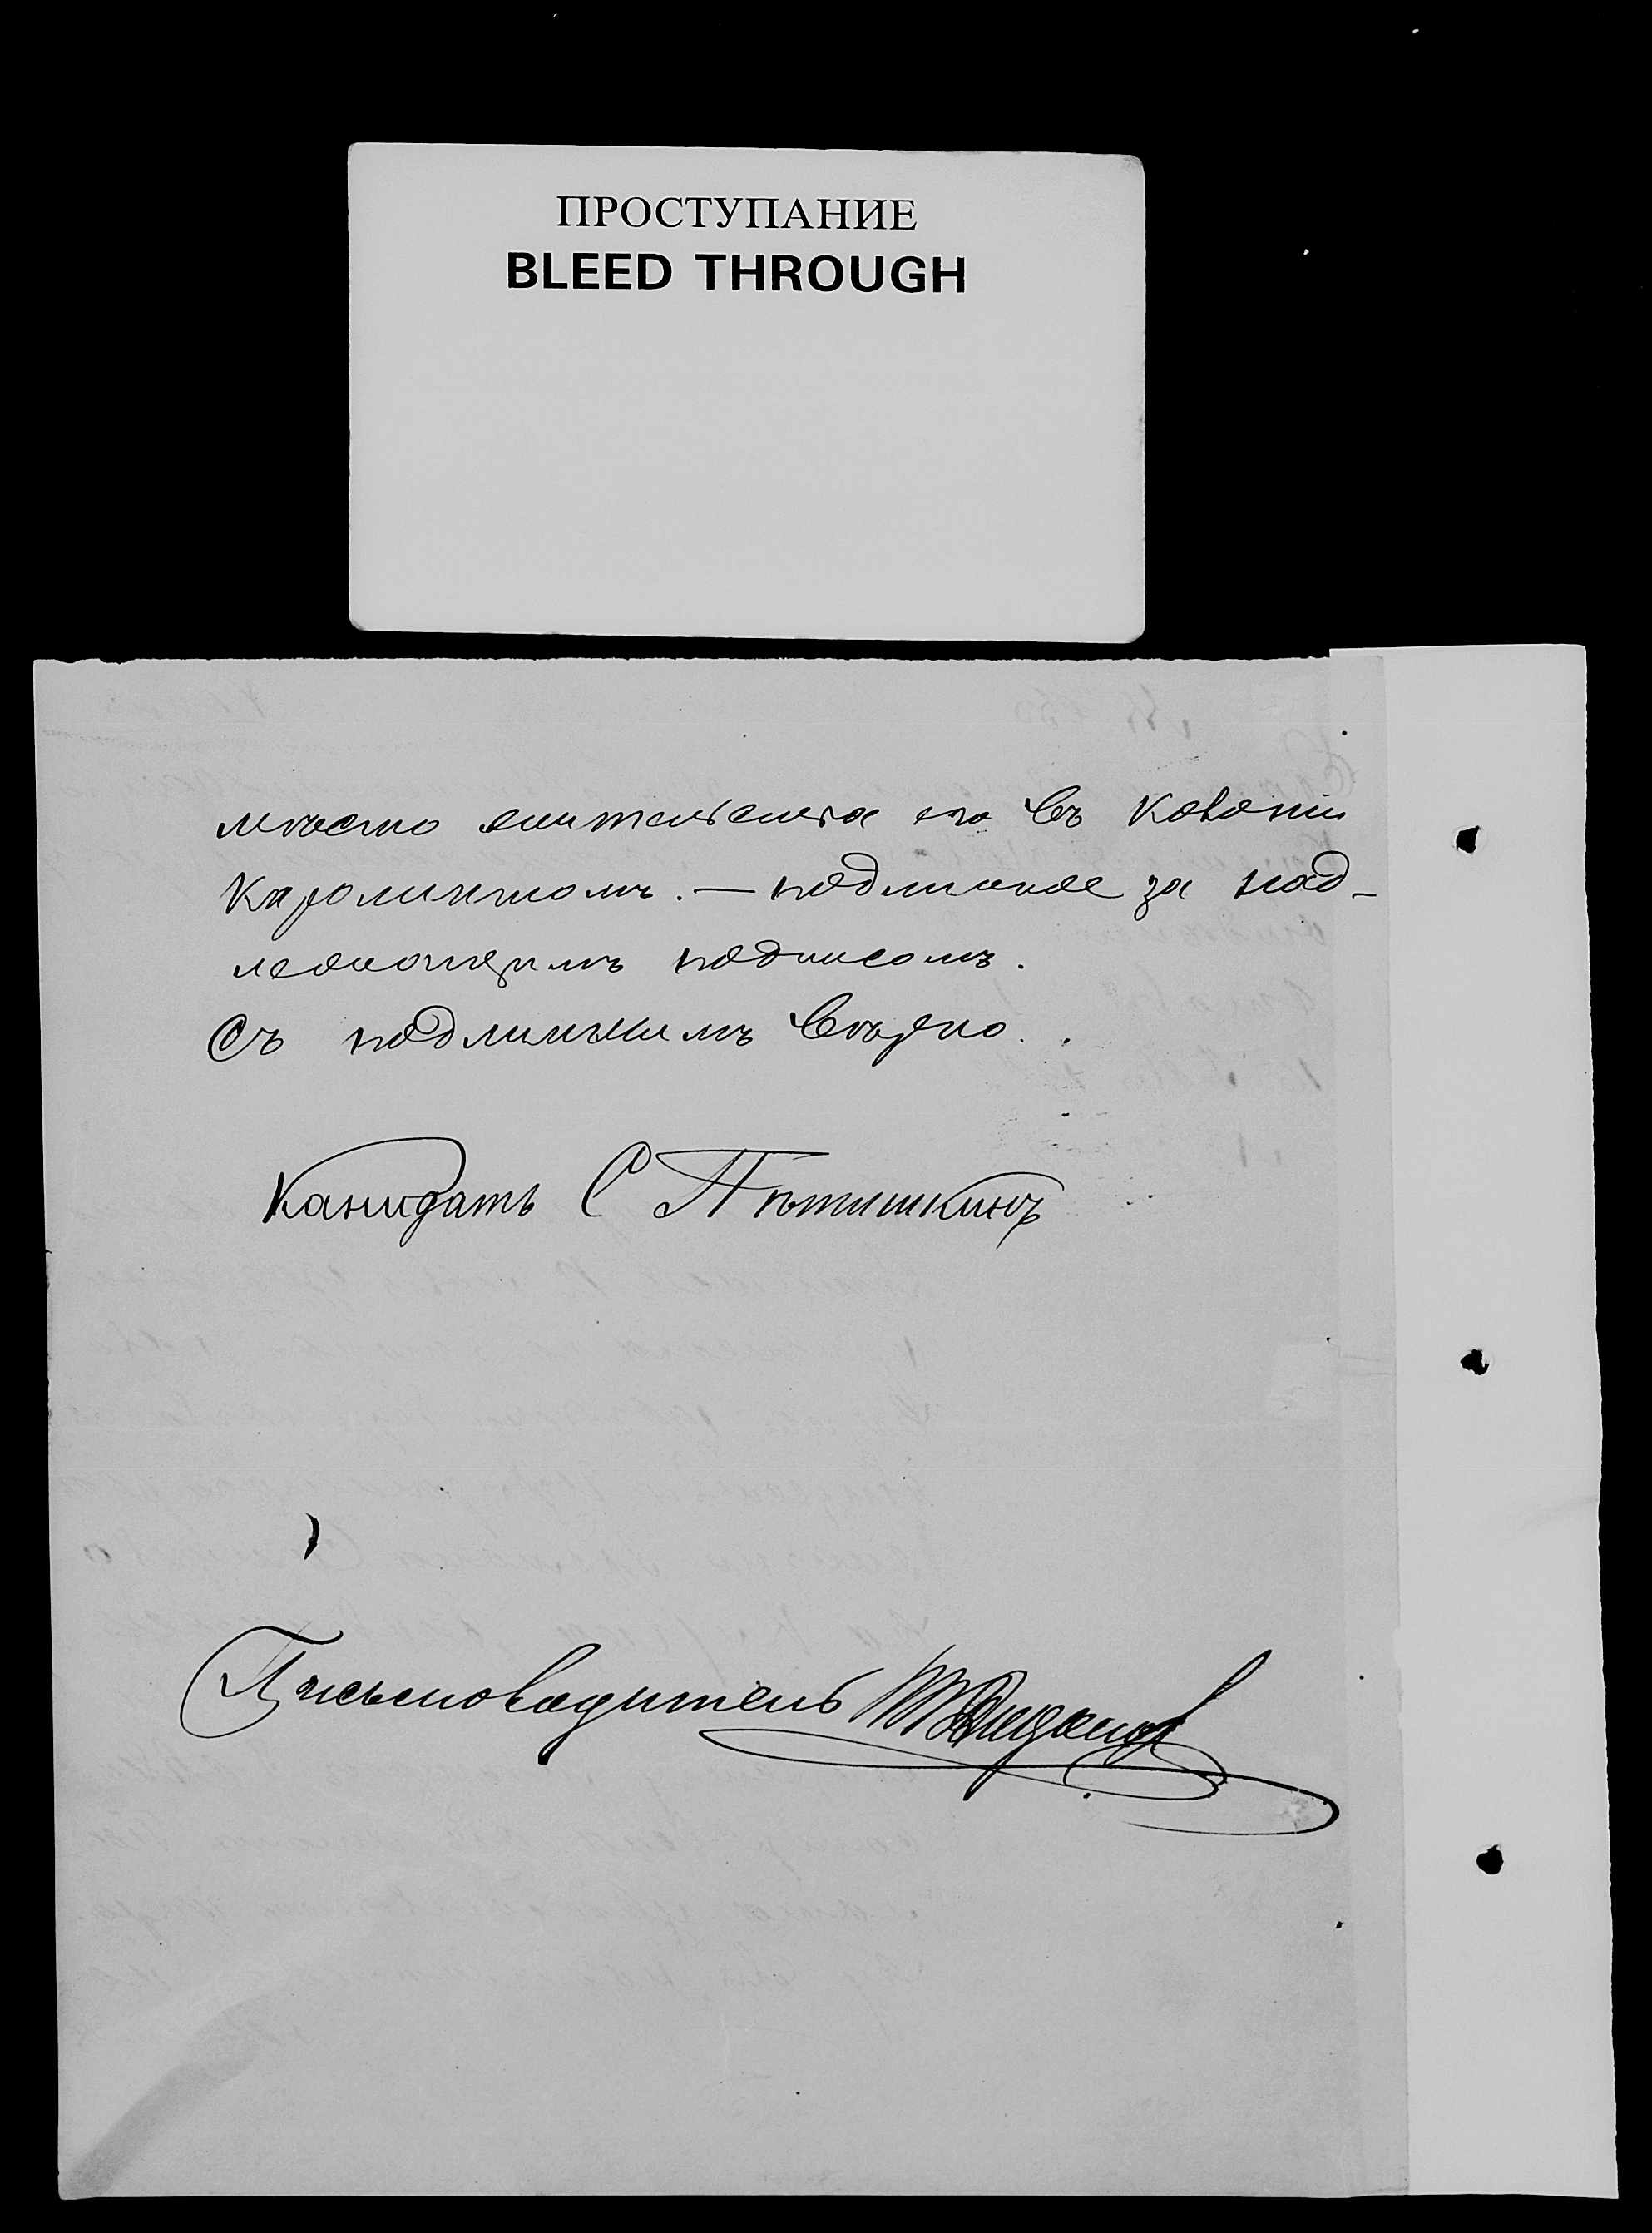 ПРОСТУПАНИЕ
BLEED THROUGH
мѣсто жительства его въ Колоніи
Каролиннтомъ. — подлинное за над-
лежащимъ подписомъ.
Съ подлиннымъ вѣрно.
Канидатъ С Пѣтишкинъ
Письмоводитель